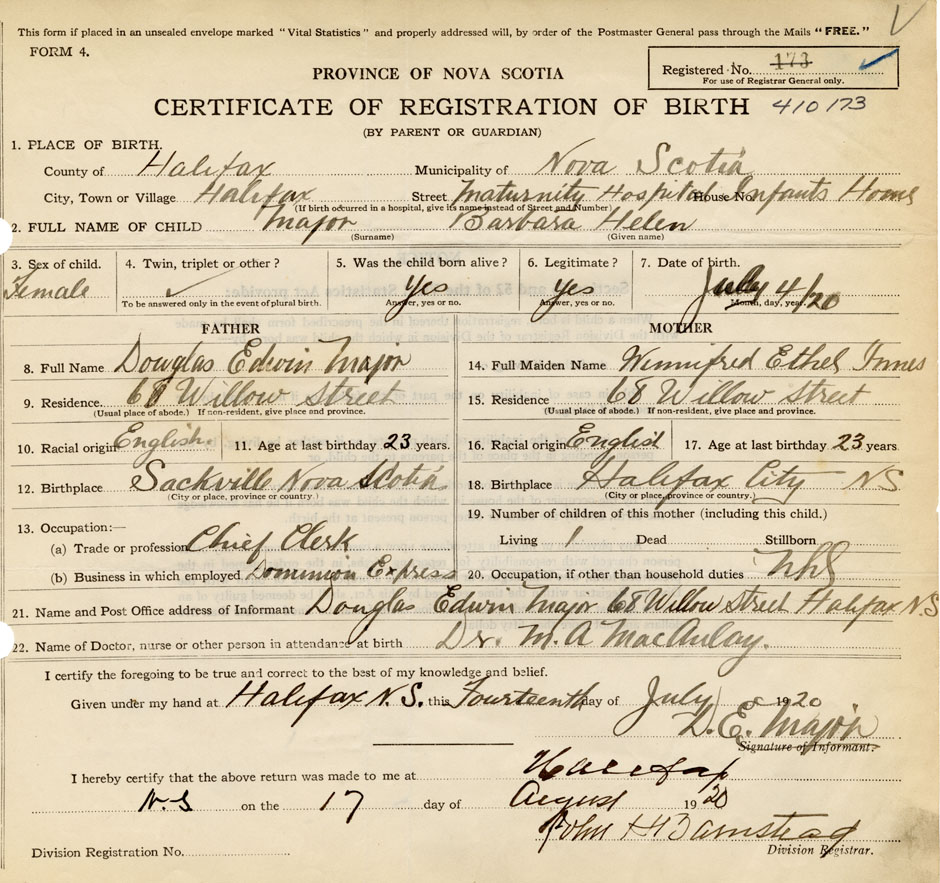 This form if placed in an unsealed envelope marked "Vital Statistics" and properly addressed will, by order of the Postmaster General pass through the Mails "FREE."
FORM 4.
Registered No. 173
For use of Registrar General only.
410173
PROVINCE OF NOVA SCOTIA
CERTIFICATE OF REGISTRATION OF BIRTH
(BY PARENT OR GUARDIAN)
1. PLACE OF BIRTH.
County of Halifax Municipality of Nova Scotia
City, Town or Village Halifax Street Maternity Hospital House No. Infants Home
(If birth occurred in a hospital, give its name instead of Street and Number)
2. FULL NAME OF CHILD Major Barbara Helen
(Surname) (Given name)
3. Sex of child. 4. Twin, triplet or other? 5. Was the child born alive? 6. Legitimate? 7. Date of birth.
Female ✓ Yes Yes July 4/20
To be answered only in the event of plural birth. Answer, yes or no. Answer, yes or no. Month, day, year.
FATHER MOTHER
8. Full Name Douglas Edwin Major 14. Full Maiden Name Winnifred Ethel Innes
9. Residence. 68 Willow Street 15. Residence 68 Willow Street
(Usual place of abode.) If non-resident, give place and province. (Usual place of abode.) If non-resident, give place and province.
10. Racial origin English. 11. Age at last birthday 23 years. 16. Racial origin English 17. Age at last birthday 23 years.
12. Birthplace Sackville Nova Scotia 18. Birthplace Halifax City NS
(City or place, province or country.) (City or place, province or country.)
13. Occupation:— 19. Number of children of this mother (including this child.)
(a) Trade or profession Chief Clerk Living 1 Dead Stillborn
(b) Business in which employed Dominion Express 20. Occupation, if other than household duties
21. Name and Post Office address of Informant Douglas Edwin Major 68 Willow Street Halifax N.S
22. Name of Doctor, nurse or other person in attendance at birth Dr. M. A MacAulay.
I certify the foregoing to be true and correct to the best of my knowledge and belief.
Given under my hand at Halifax N.S. this Fourteenth day of July 1920
D. E. Major
Signature of Informant.
I hereby certify that the above return was made to me at Halifax
N.S on the 17 day of August 1920
John H Barnstead
Division Registration No. Division Registrar.